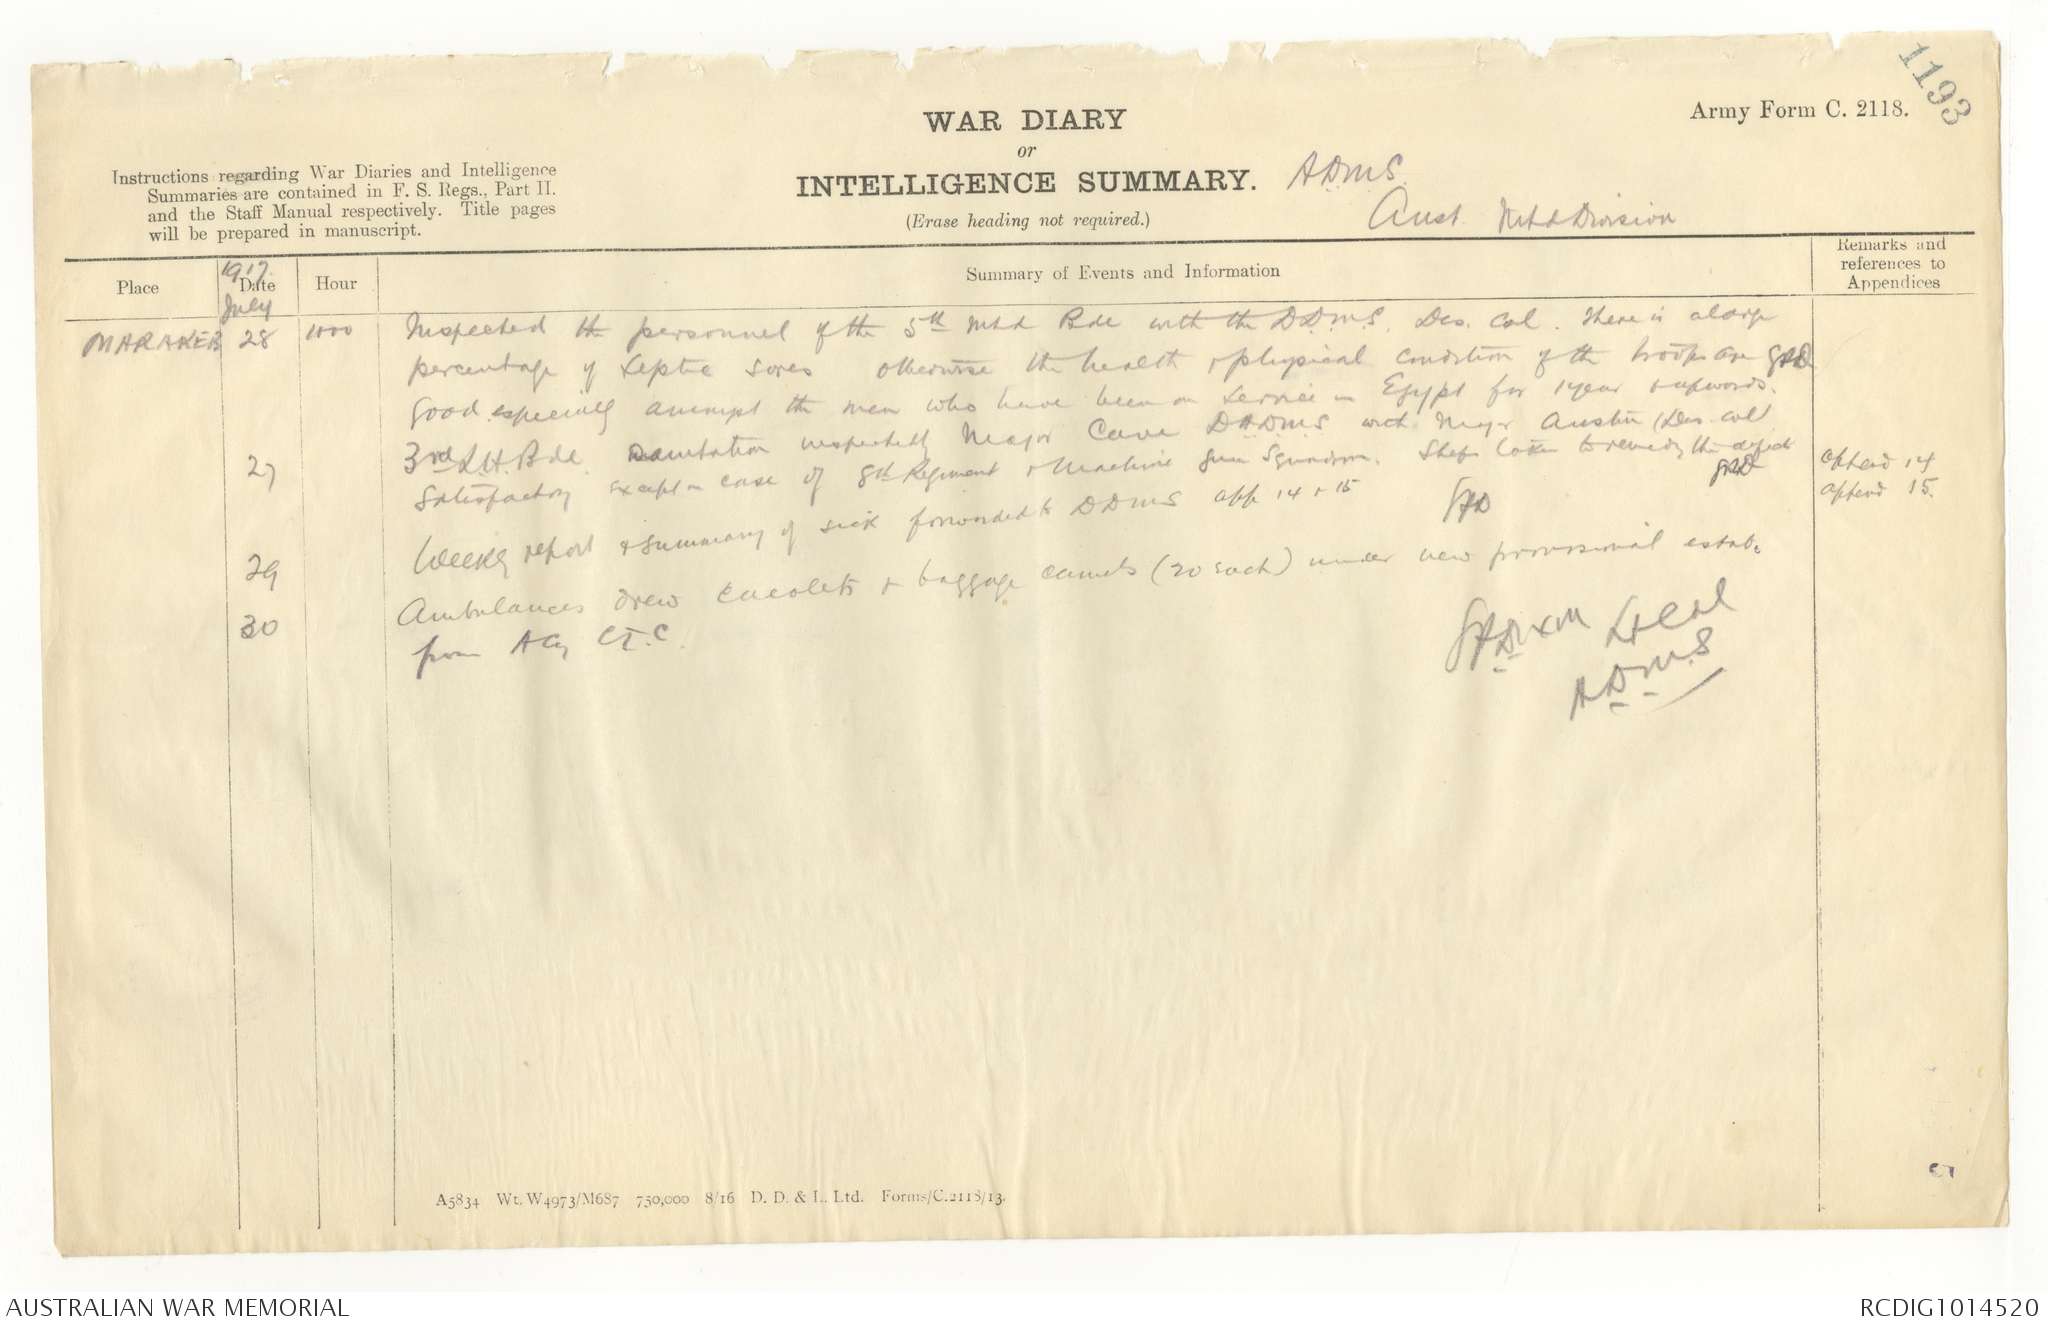 1193
Army Form C. 2118.
WAR DIARY
or
INTELLIGENCE SUMMARY.
(Erase heading not required.)
A.D.M.S.
Aust. Mtd Division
Instructions regarding War Diaries and Intelligence
Summaries are contained in F. S. Regs., Part II.
and the Staff Manual respectively. Title pages
will be prepared in manuscript.
Place
1917.
Date
July
Hour
Summary of Events and Information
Remarks and
references to
Appendices
MARAKEB 28 1000 Inspected the personnel of the 5th Mtd Bde with the D.D.M.S. Des. Col. There is a large
percentage of septic sores otherwise the health & physical condition of the troops are
good especially amongst the men who have been on service in Egypt for 1 year & upwards.
27 3rd L.H. Bde. Sanitation inspected by Major Cave D.A.D.M.S with Major Austin (Des. Col)
satisfactory except in case of 8th Regiment & Machine Gun Squadron. Steps taken to remedy the defects
29 Weekly report & summary of sick forwarded to DDMS app 14 & 15
append 14
append 15.
30 Ambulances drew cacolets & baggage camels (20 each) under new provisional estab.
from A Coy C.T.C.
Lt Col
A.D.M.S
A5834 Wt. W4973/M687 750,000 8/16 D. D. & L. Ltd. Forms/C.2118/13.
AUSTRALIAN WAR MEMORIAL
RCDIG1014520